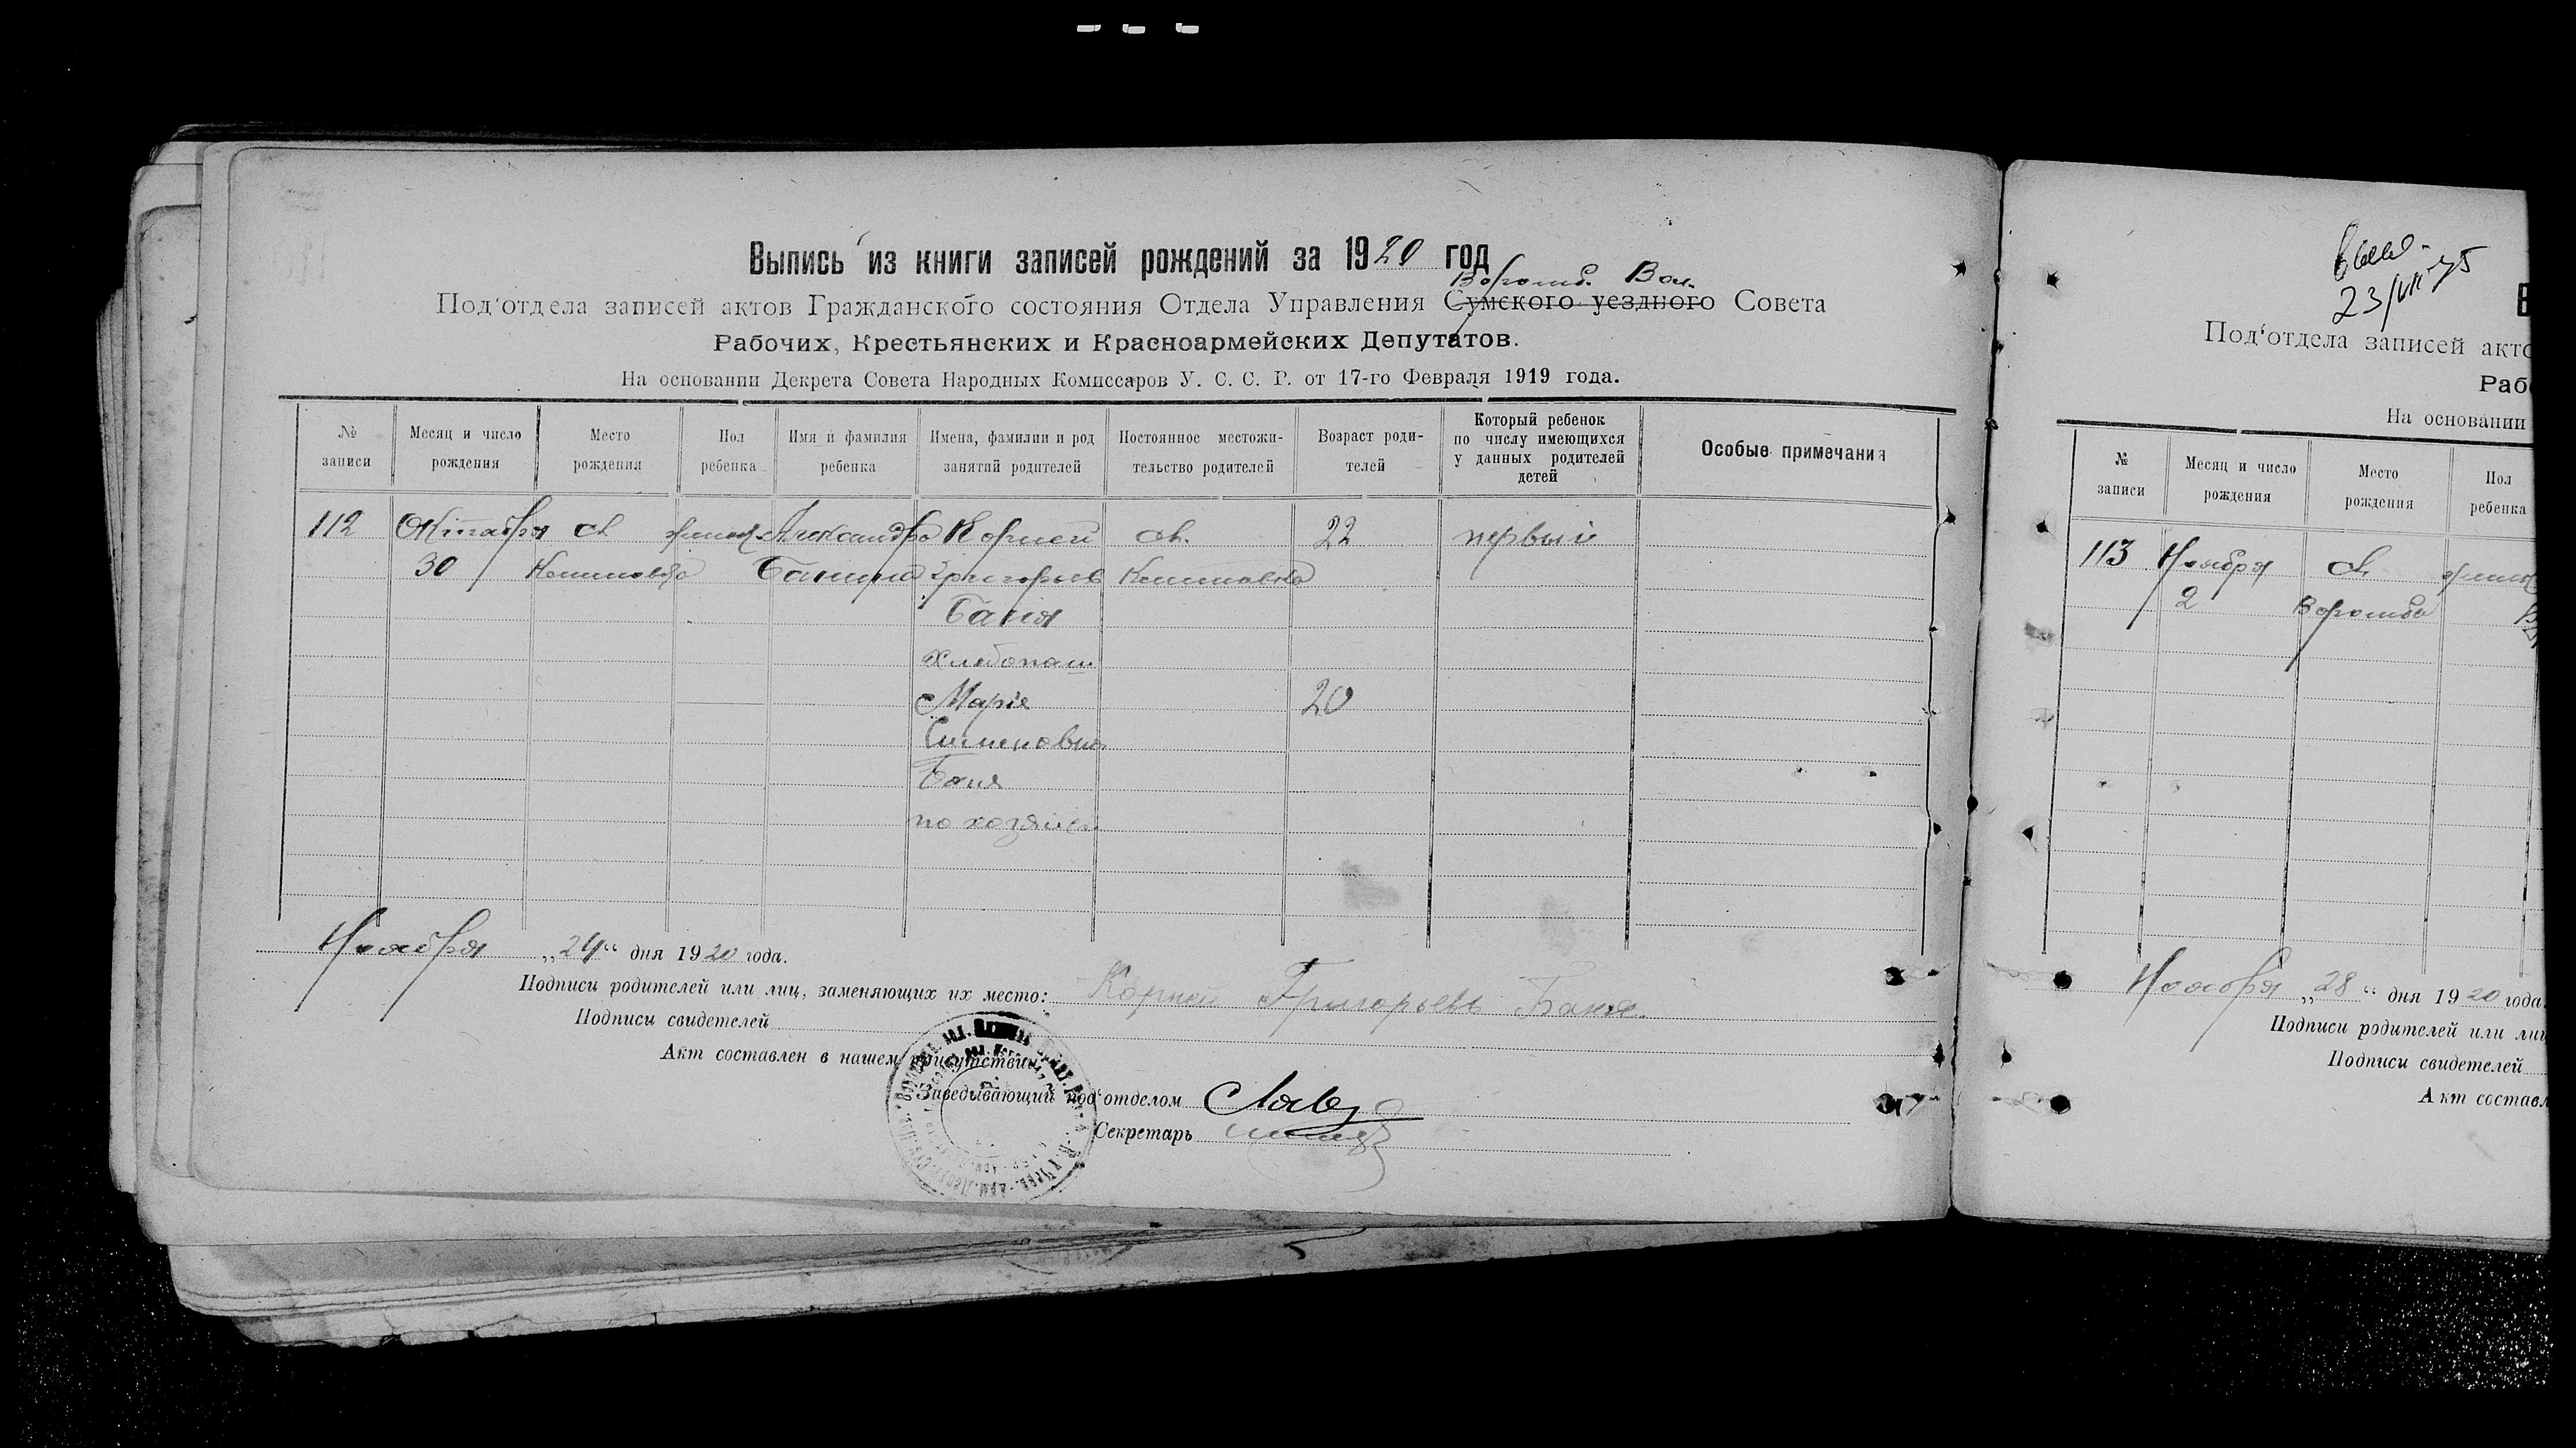 Выпись из книги записей рождений за 1920 год
Ворожб. Вол.
Под‘отдела записей актов Гражданского состояния Отдела Управления Сумского уездного Совета
Рабочих, Крестьянских и Красноармейских Депутатов.
На основании Декрета Совета Народных Комиссаров У. С. С. Р. от 17-го Февраля 1919 года.
№ записи
Месяц и число рождения
Место рождения
Пол ребенка
Имя и фамилия ребенка
Имена, фамилии и род занятий родителей
Постоянное местожительство родителей
Возраст родителей
Который ребенок по числу имеющихся у данных родителей детей
Особые примечания
112 Октября с. женск. Александра Корней с. 22 первый
30 Банина Григорьев
Баня
хлебопаш.
Марие 20
Сименовна
Баня
по хозяйст.
Ноября „24“ дня 1920 года.
Подписи родителей или лиц, заменяющих их место: Корней Григорьевъ Баня.
Подписи свидетелей
Акт составлен в нашем присутствии:
Заведывающий под‘отделом
Секретарь
23/VII-75
Под‘отдела записей акто
Раб
На основании
№ записи
Месяц и число рождения
Место рождения
Пол ребенка
113 Ноября с. женск
2 Ворожба
Ноября „28“ дня 1920 года.
Подписи родителей или лиц
Подписи свидетелей
Акт составл